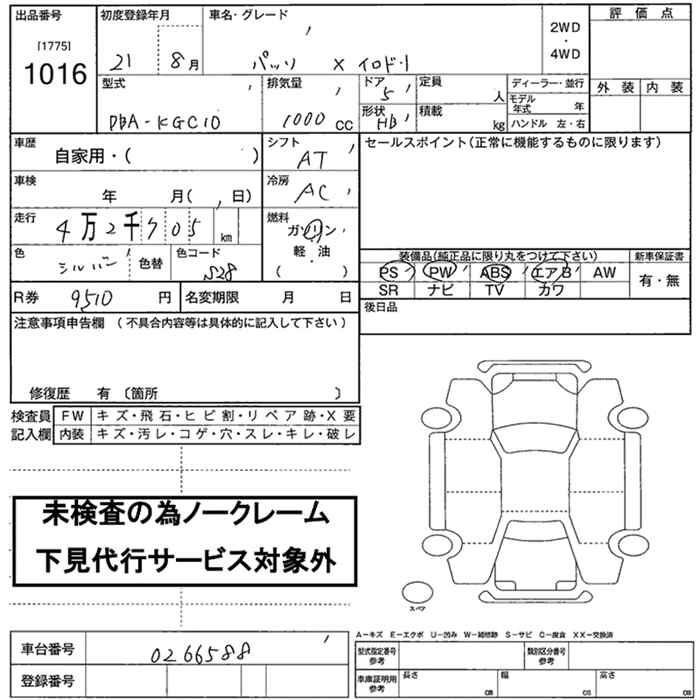 出品番号 初度登録年月 車名・グレード 評価点
[1775]
1016
21 8月 パッソ X イロドリ 2WD・4WD
外装 内装
型式 排気量 ドア 5 定員 人 ディーラー・並行
DBA-KGC10 1000 cc 形状 HB 積載 kg モデル年式 年
ハンドル 左・右
車歴 自家用・( ) シフト AT セールスポイント(正常に機能するものに限ります)
車検 年 月( 、 日) 冷房 AC
走行 4万2千705 km 燃料 ガソリン・軽・油 ( )
色 シルバー 色替 色コード S28
装備品(純正品に限り丸をつけて下さい) 新車保証書
PS PW ABS エアB AW 有・無
SR ナビ TV カワ
R券 9510 円 名変期限 月 日 後日品
注意事項申告欄 (不具合内容等は具体的に記入して下さい)
修復歴 有 〔箇所 〕
検査員 FW キズ・飛石・ヒビ割・リペア跡・X要
記入欄 内装 キズ・汚レ・コゲ・穴・スレ・キレ・破レ
未検査の為ノークレーム
下見代行サービス対象外
スペア
A-キズ E-エクボ U-凹み W-補修跡 S-サビ C-腐食 XX-交換済
車台番号 0266588
型式指定番号 参考 類別区分番号 参考
登録番号
車庫証明用 参考 長さ cm 幅 cm 高さ cm